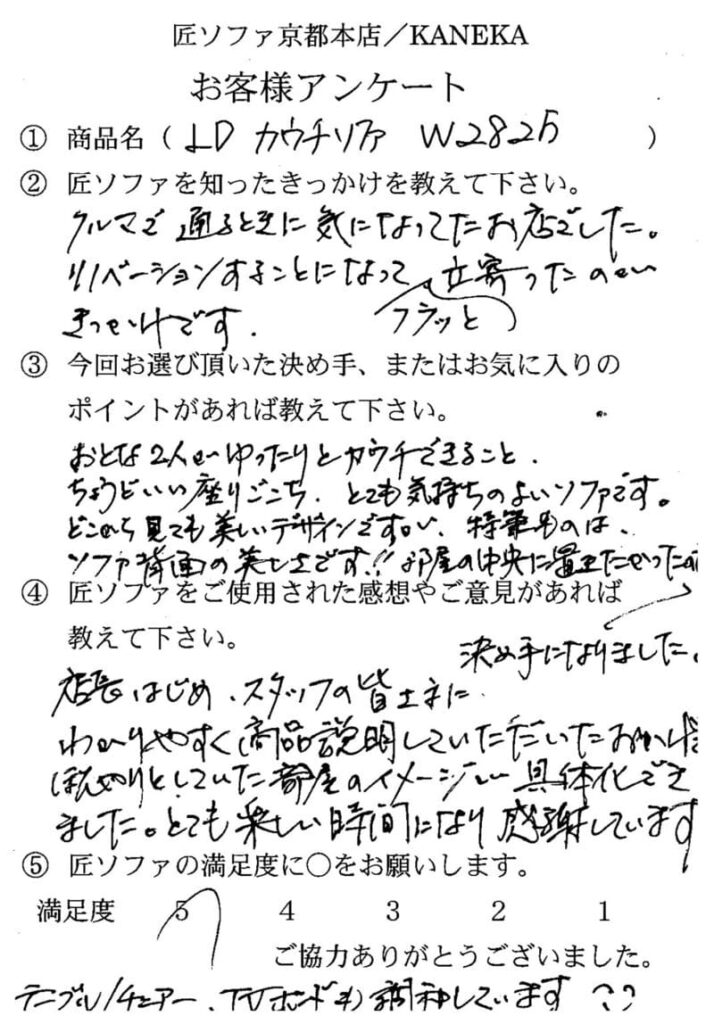 匠ソファ京都本店／KANEKA
お客様アンケート
① 商品名（ LD カウチソファ W2825 ）
② 匠ソファを知ったきっかけを教えて下さい。
クルマで通るときに気になってたお店でした。
リノベーションすることになって、立寄ったのが
フラッと
きっかけです.
③ 今回お選び頂いた決め手、またはお気に入りの
ポイントがあれば教えて下さい。
おとな2人がゆったりとカウチできること.
ちょうどいい座りごこち. とても気持ちのよいソファです。
どこから見ても美しいデザインですが、特筆ものは、
ソファ背面の美しさです!! お部屋の中央に置きたかったの
④ 匠ソファをご使用された感想やご意見があれば
教えて下さい。
決め手になりました。
店長はじめ、スタッフの皆さまに
わかりやすく商品説明していただいたおかげ
ぼんやりとしていた部屋のイメージが具体化でき
ました。とても楽しい時間になり感謝しています
⑤ 匠ソファの満足度に○をお願いします。
満足度 5 4 3 2 1
ご協力ありがとうございました。
テーブル/チェアー、TVボードも しています